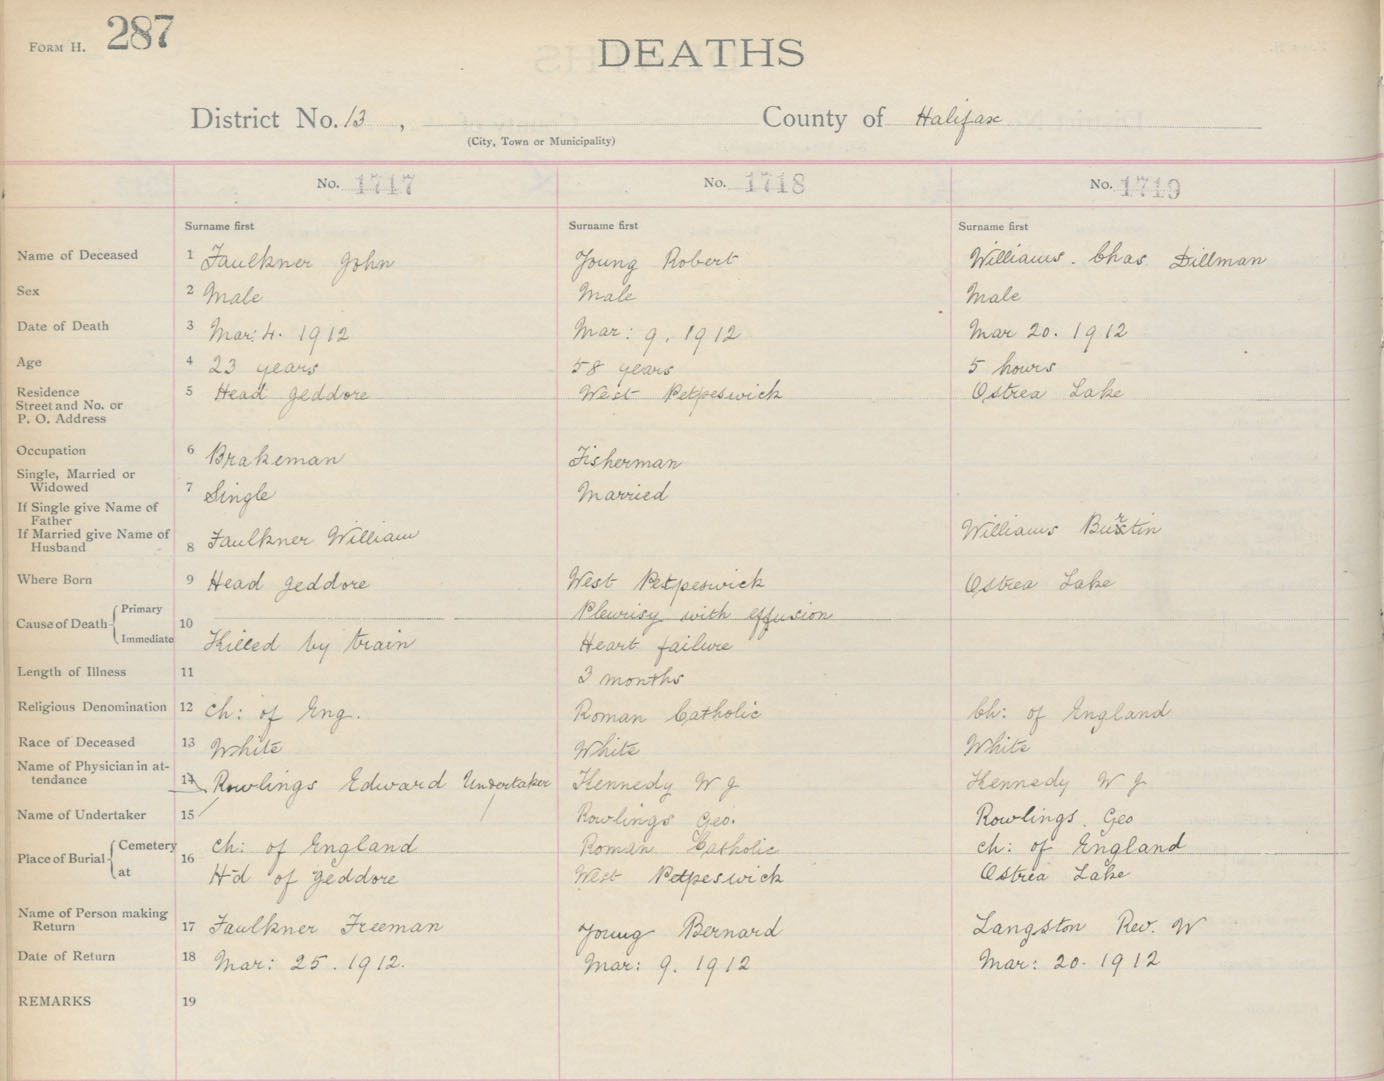 FORM H. 287
DEATHS
District No. 13 , County of Halifax
(City, Town or Municipality)
No. 1717 No. 1718 No. 1719
Surname first Surname first Surname first
Name of Deceased 1 Faulkner John Young Robert Williams. Chas Dillman
Sex 2 Male Male Male
Date of Death 3 Mar: 4. 1912 Mar: 9. 1912 Mar 20. 1912
Age 4 23 years 58 years 5 hours
Residence
Street and No. or
P. O. Address 5 Head Jeddore West Petpeswick Ostrea Lake
Occupation 6 Brakeman Fisherman
Single, Married or
Widowed 7 Single Married
If Single give Name of
Father
If Married give Name of
Husband 8 Faulkner William Williams Burtin
Where Born 9 Head Jeddore West Petpeswick Ostrea Lake
Cause of Death 10 Primary Pleurisy with effusion
Immediate Killed by train Heart failure
Length of Illness 11 3 months
Religious Denomination 12 Ch: of Eng. Roman Catholic Ch: of England
Race of Deceased 13 White White White
Name of Physician in at-
tendance 14 Rowlings Edward Undertaker Kennedy W J Kennedy W J
Name of Undertaker 15 Rowlings Geo. Rowlings. Geo
Place of Burial 16 Cemetery Ch: of England Roman Catholic Ch: of England
at H'd of Jeddore West Petpeswick Ostrea Lake
Name of Person making
Return 17 Faulkner Freeman Young Bernard Langston Rev. W
Date of Return 18 Mar: 25. 1912. Mar: 9. 1912 Mar: 20. 1912
REMARKS 19